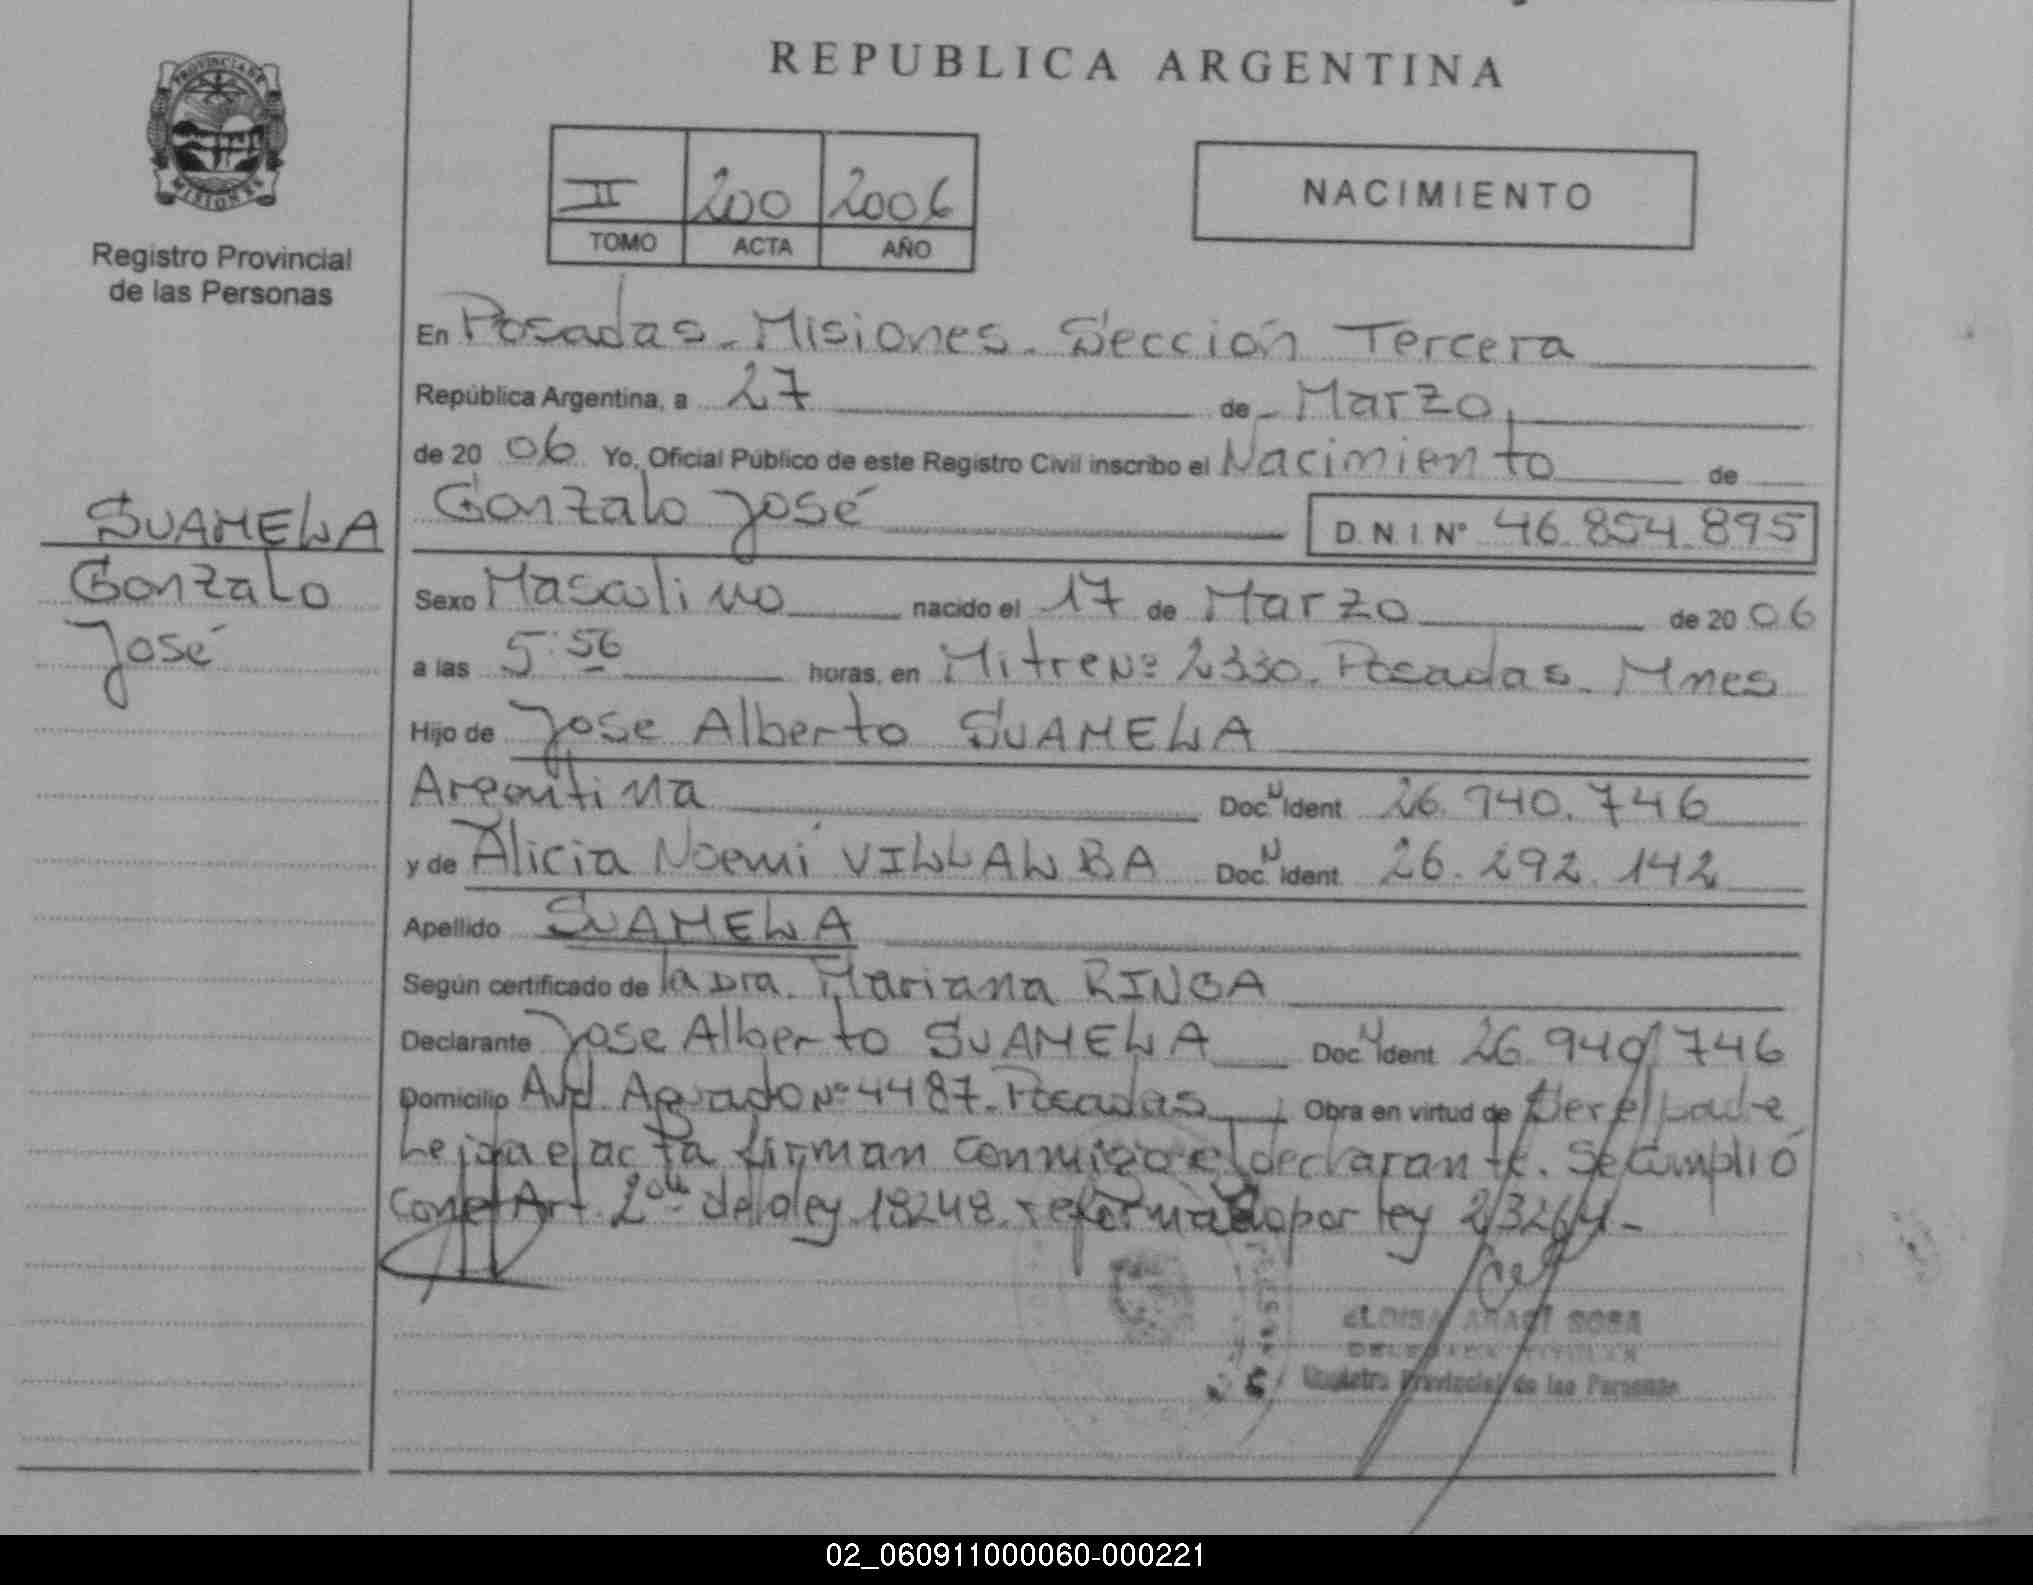 REPUBLICA ARGENTINA
PROVINCIA DE
MISIONES
Registro Provincial
de las Personas
II 200 2006
TOMO ACTA AÑO
NACIMIENTO
En Posadas - Misiones - Sección Tercera
República Argentina, a 27 de Marzo,
de 20 06 Yo, Oficial Público de este Registro Civil inscribo el Nacimiento de
Gonzalo José D.N.I. Nº 46.854.895
SUAMELA
Gonzalo
José
Sexo Masculino nacido el 17 de Marzo de 20 06
a las 5:56 horas, en Mitre Nº 2330. Posadas. Mnes
Hijo de Jose Alberto SUAMELA
Argentina Doc. Ident. 26.940.746
y de Alicia Noemí VILLALBA Doc. Ident. 26.292.142
Apellido SUAMELA
Según certificado de la Dra. Mariana RINGA
Declarante Jose Alberto SUAMELA Doc. Ident. 26.940.746
Domicilio Avd. Aguado Nº 4487. Posadas Obra en virtud de ser el padre
Leida el acta firman conmigo el declarante. Se cumplió
con el Art. 2º de la ley 18248 reformado por ley 23264 -
SOSA
Registro Provincial de las Personas
02_060911000060-000221